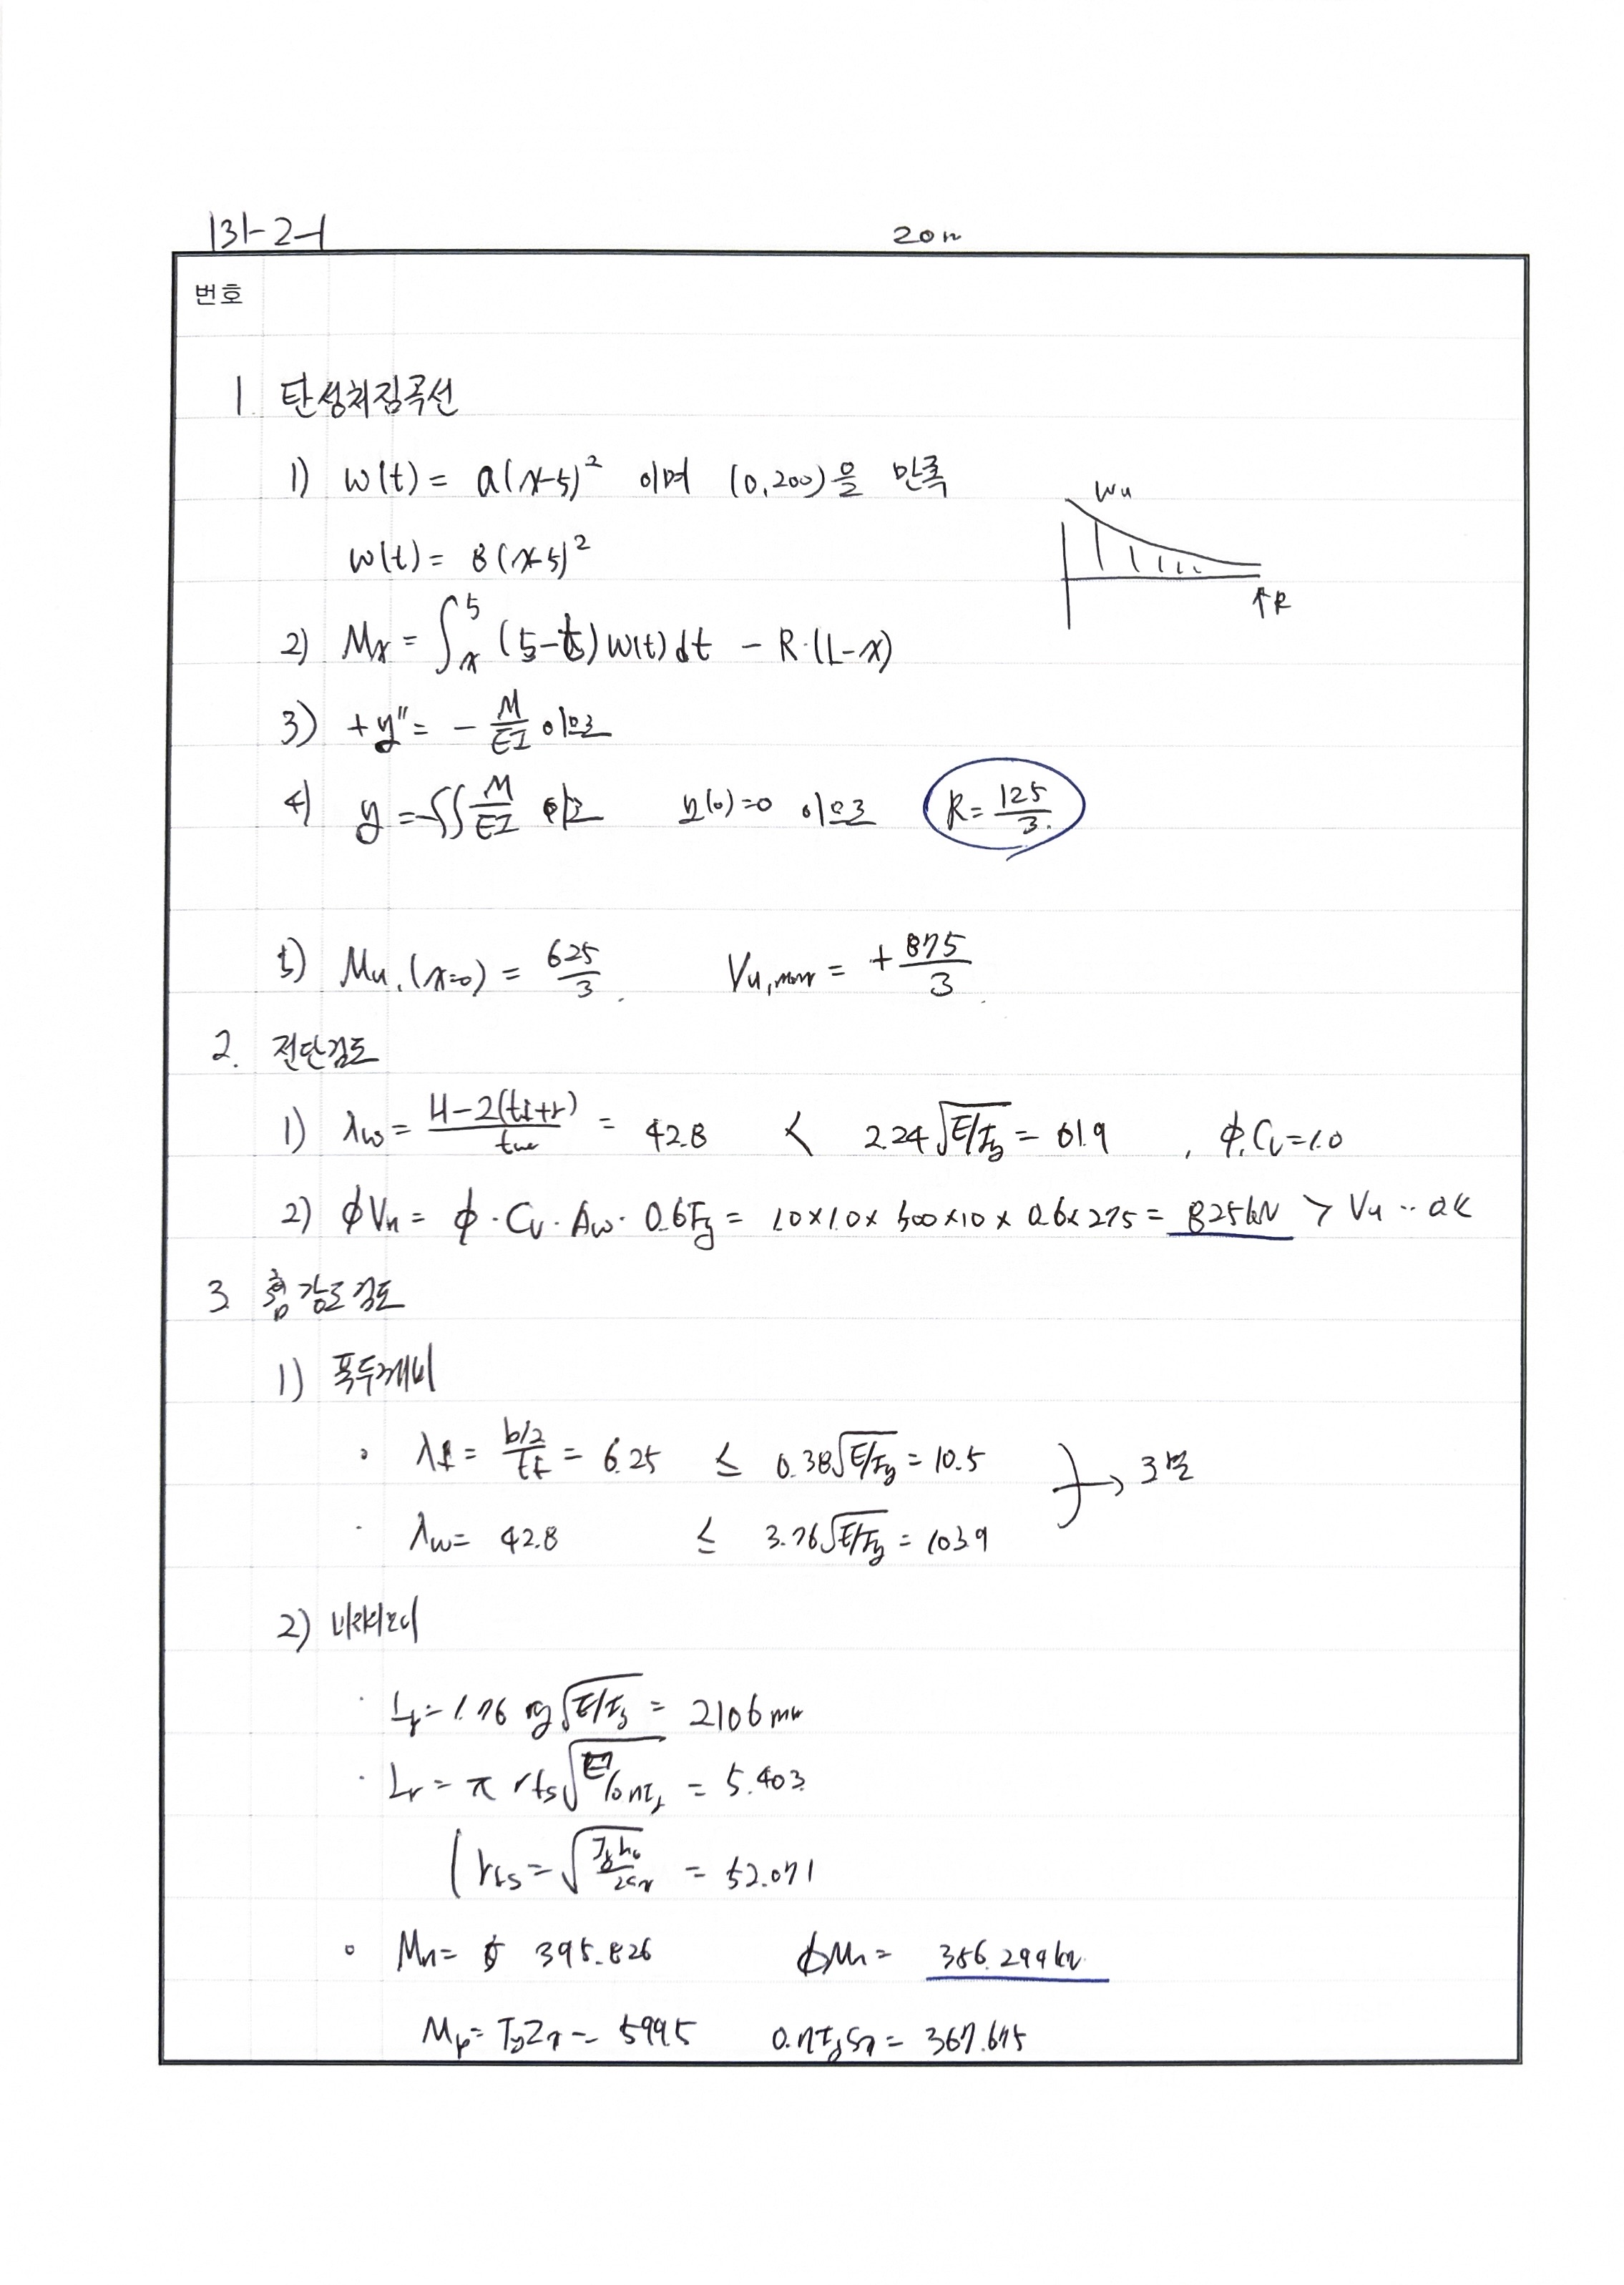 131-2-1
20m
번호
1. 탄성처짐곡선
1) w(t) = a(x-5)² 이며 (0,200)을 만족
w(t) = 8(x-5)²
Wu
↑R
2) Mx = ∫ₓ⁵ (5-t) w(t) dt - R·(L-x)
3) +y'' = - M/EI 이므로
4) y = -∬ M/EI y(0)=0 이므로 R = 125/3.
5) Mu,(x=0) = 625/3. Vu,max = + 875/3.
2. 전단검토
1) λw = H-2(tf+r)/tw = 42.8 < 2.24√E/Fy = 61.9 , φ,Cv=1.0
2) φVn = φ · Cv · Aw · 0.6Fy = 1.0×1.0× 500×10× 0.6×275 = 825kN > Vu ·· OK
3. 휨강도검토
1) 폭두께비
∘ λf = b/2/tf = 6.25 ≤ 0.38√E/Fy = 10.5
· λw = 42.8 ≤ 3.76√E/Fy = 103.9
→ 콤팩트
2) 비지지길이
· Lp = 1.76 ry√E/Fy = 2106mm
· Lr = π rts√E/0.7Fy = 5.403
( rts = √Iyho/2Sx = 52.071
∘ Mn = 395.826 φMn = 356.244kN
Mp = FyZx = 599.5 0.7FySx = 367.675